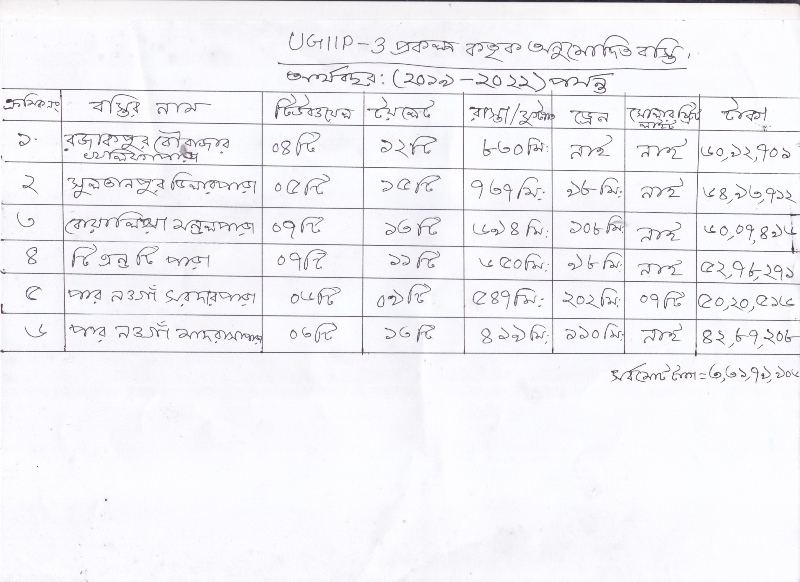 UGIIP-3 প্রকল্প কর্তৃক অনুমোদিত বস্তি।
অর্থবছর: (২০১৯-২০২২) পর্যন্ত
ক্রমিক নং বস্তির নাম টিউবওয়েল টয়লেট রাস্তা/ফুটপাত ড্রেন সোলার স্ট্রিট লাইট টাকা
১. রজাকপুর বৌবাজার ০৪টি ১২টি ৮৩০মি: নাই নাই ৬০,১২,৭০১
২ সুলতানপুর জেলেপাড়া ০৫টি ১৫টি ৭৬৭মি: ৯৮মি: নাই ৬৪,৯৩,৭১২
৩ বোয়ালিয়া মন্ডলপাড়া ০৭টি ১৩টি ৬৯৪মি: ১০৮মি: নাই ৬০,০৭,৪৯৬
৪ টি এন্ড টি পাড়া ০৭টি ১১টি ৬৫০মি: ৯৮মি: নাই ৫২,৭৮,২৭১
৫ পার নওগাঁ সরদারপাড়া ০৬টি ০৯টি ৫৪৭মি: ২০২মি: ০৭টি ৫০,২০,৫১৬
৬ পার নওগাঁ মাদরাসাপাড়া ০৩টি ১৩টি ৪১৯মি: ১১০মি: নাই ৪২,৬৭,২০৮
সর্বমোট টাকা = ৩,৩১,৭৯,১০৬